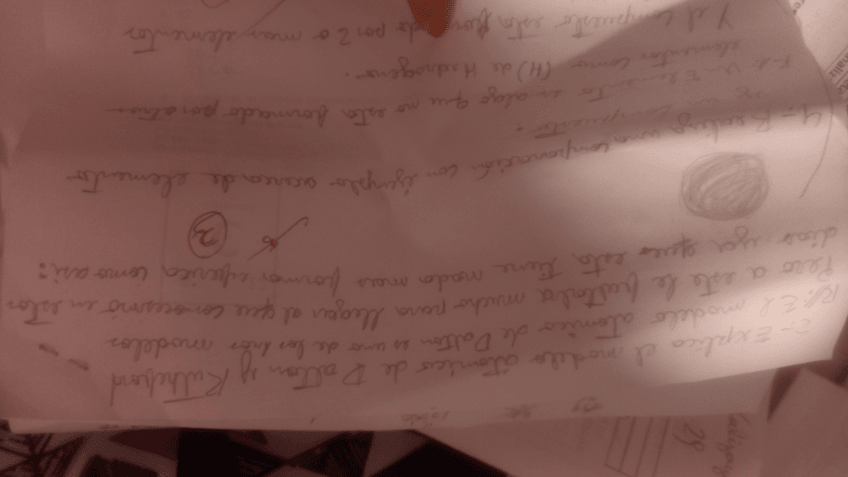 2- Explica el modelo átomico de Dalton y Rutheford
R//: El modelo atomico de Dalton es uno de los tros modelos
Pero a este le faltaba mucho para llegar al que conocesmo en estos
dias ya ques esta tiene nada mas forma esferica como asi:
2
4- Realiza una comparación con ejemplo acerca de elemento
y compuesto.
Un Elemento es algo que no esta formado por otros
elementos como (H) de Hidrogeno.
Y el compuesto esta por 2 o mas elementos
28